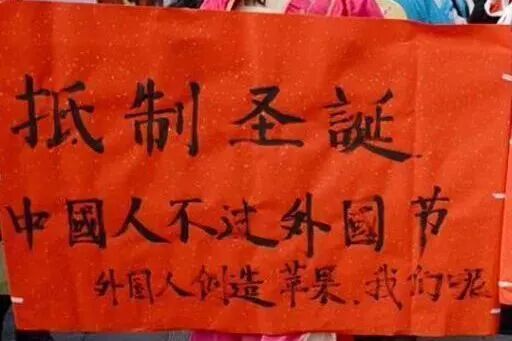 抵制圣誕
中國人不过外國节
外国人创造苹果，我们呢